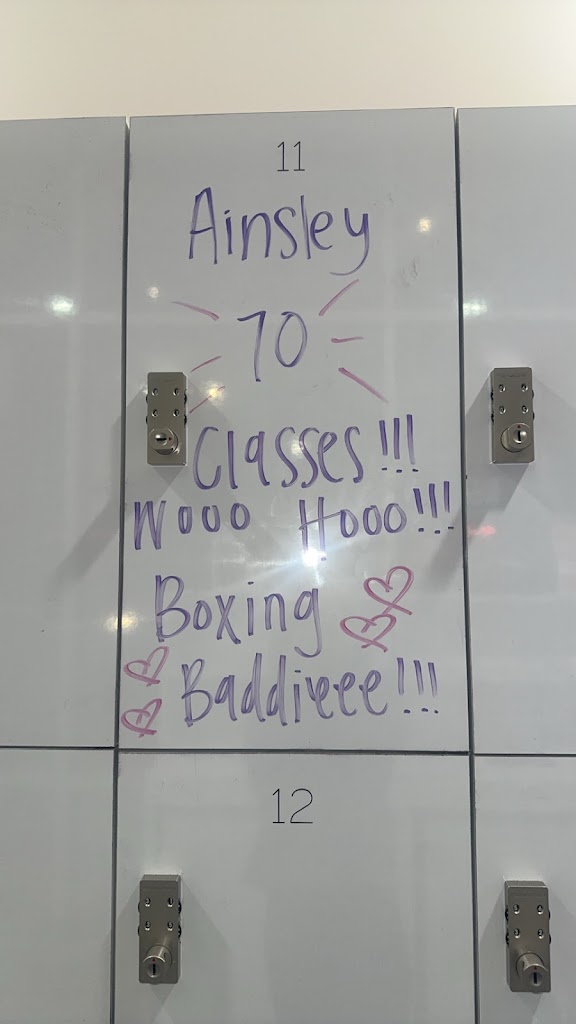 11
Ainsley
70
Classes!!!
Wooo Hooo!!!
Boxing
Baddieee!!!
12